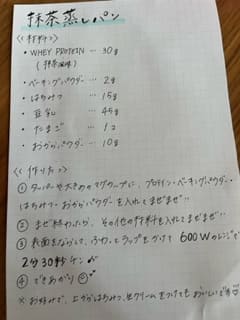 抹茶蒸しパン
<<材料>>
・WHEY PROTEIN … 30g
(抹茶風味)
・ベーキングパウダー … 2g
・はちみつ … 15g
・豆乳 … 45g
・たまご … 1コ
・おからパウダー … 10g
<<作り方>>
① タッパーや大きめのマグカップに、プロテイン・ベーキングパウダー・
はちみつ・おからパウダーを入れてまぜまぜ!!
② まぜ終わったら、その他の材料を入れてまぜまぜ!!
③ 表面をならして、ふわっとラップをかけて 600Wのレンジで
2分30秒チン
④ できあがり
※ お好みで、上からはちみつ、生クリームをつけてもおいしいです